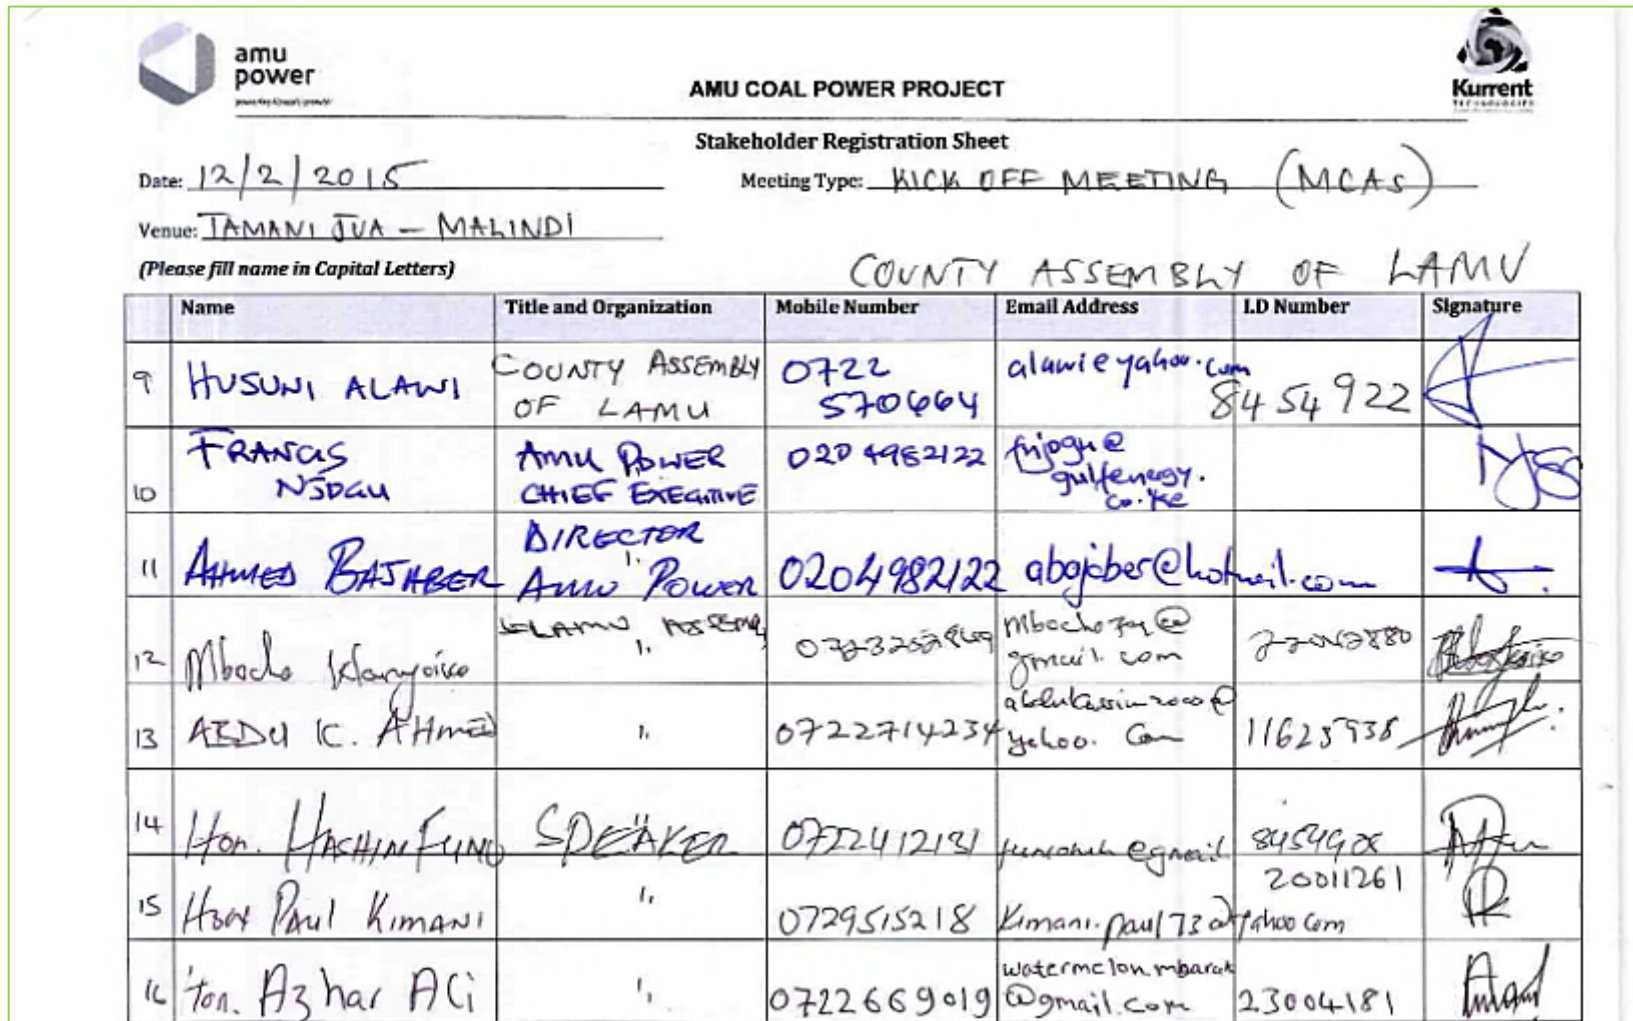 amu
power
AMU COAL POWER PROJECT
Kurrent
TECHNOLOGIES
Stakeholder Registration Sheet
Date: 12/2/2015 Meeting Type: KICK OFF MEETING (MCAs)
Venue: TAMANI JUA - MALINDI
(Please fill name in Capital Letters) COUNTY ASSEMBLY OF LAMU
Name Title and Organization Mobile Number Email Address I.D Number Signature
9 HUSUNI ALAWI COUNTY ASSEMBLY OF LAMU 0722 570664 alawi@yahoo.com 8454922
10 FRANCIS NJOGU AMU POWER CHIEF EXECUTIVE 020 4982122 fnjogu@gulfenergy.co.ke
11 AHMED BAJABER DIRECTOR AMU POWER 0204982122 abajaber@hotmail.com
12 Mbocho LAMU ASSEMB gmail.com
13 ABDU K. AHMED " 0722714234 abdukassim2000@yahoo.com 11625938
14 Hon. HASHIM FUNO SPEAKER 0722412131 @gmail
15 Hon PAUL KIMANI " 0729515218 Kimani.paul73@yahoo.com 20011261
16 Hon. Azhar Ali " 0722669019 watermelon.mbarak@gmail.com 23004181